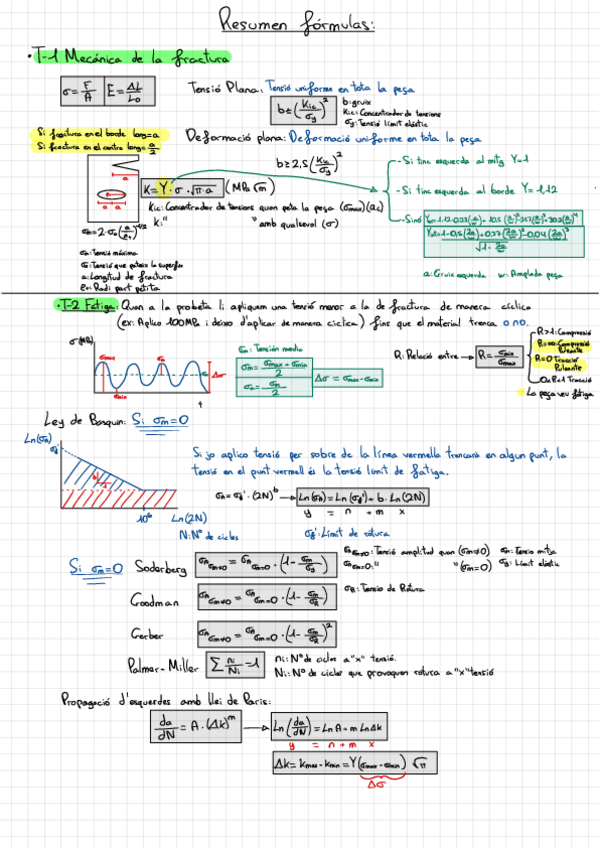 Resumen fórmulas:
• T-1 Mecánica de la fractura
σ = F/A E = ΔL/L₀
Tensió Plana: Tensió uniforme en tota la peça
b ≤ (K_IC/σy)²
b: gruix
K_IC: Concentrador de tensions
σy: Tensió límit elástic
Si fractura en el borde long = a
Si fractura en el centro long = a/2
Deformació plana: Deformació uniforme en tota la peça
b ≥ 2,5 (K_IC/σy)²
a
a
K = Y · σ · √π·a (MPa √m)
- Si tinc esquerda al mitg Y = 1
- Si tinc esquerda al borde Y = 1,12
- Sinó
K_IC: Concentrador de tensions quan peta la peça (σmax) (ac)
K: " " amb qualsevol (σ)
σm = 2 · σ₀ (a/ρt)^1/2
σm: Tensió máxima
σ: Tensió que pateix la superfície
a: Longitud de fractura
ρt: Radi part petita
a: Gruix esquerda w: Amplada peça
• T-2 Fatiga: Quan a la probeta li apliquem una tensió menor a la de fractura de manera cíclica
(ex: Aplico 100MPa i deixo d'aplicar de manera cíclica) fins que el material trenca o no.
σ (MPa)
σmax
σa
σmin
Δσ
t
σm: Tensión media
σm = (σmax + σmin)/2
σa = σm/2
Δσ = σmax - σmin
R: Relació entre → R = σmin/σmax
R > 1: Compressió
R = ∞: Compressió Pulsante
R = 0 Tracció Pulsante
0 < R < 1 Tracció
La peça veu fatiga
Ley de Basquin: Si σm = 0
Ln(σa)
σf'
10⁶ Ln(2N)
N: Nº de cicles
Si jo aplico tensió per sobre de la línea vermella trencarà en algun punt, la
tensió en el punt vermell és la tensió límit de fatiga.
σa = σf' · (2N)^b → Ln(σa) = Ln(σf') + b · Ln(2N)
y = n + m x
σf': Límit de rotura
Si σm = 0 Soderberg σa σm≠0 = σa σm=0 · (1 - σm/σy)
σa σm≠0: Tensió amplitud quan (σm≠0)
σa σm=0: " " (σm=0)
σm: Tensió mitja
σy: Límit elástic
Goodman σa σm≠0 = σa σm=0 · (1 - σm/σR)
σR: Tensio de Rotura
Gerber σa σm≠0 = σa σm=0 · (1 - σm/σR)²
Palmer-Miller Σ ni/Ni = 1
ni: Nº de cicles a "x" tensió.
Ni: Nº de cicles que provoquen rotura a "x" tensió
Propagació d'esquerdes amb llei de Paris:
da/dN = A · (ΔK)^m → Ln(da/dN) = Ln A + m Ln ΔK
y = n + m x
ΔK = Kmax - Kmin = Y(σmax - σmin) √π
Δσ